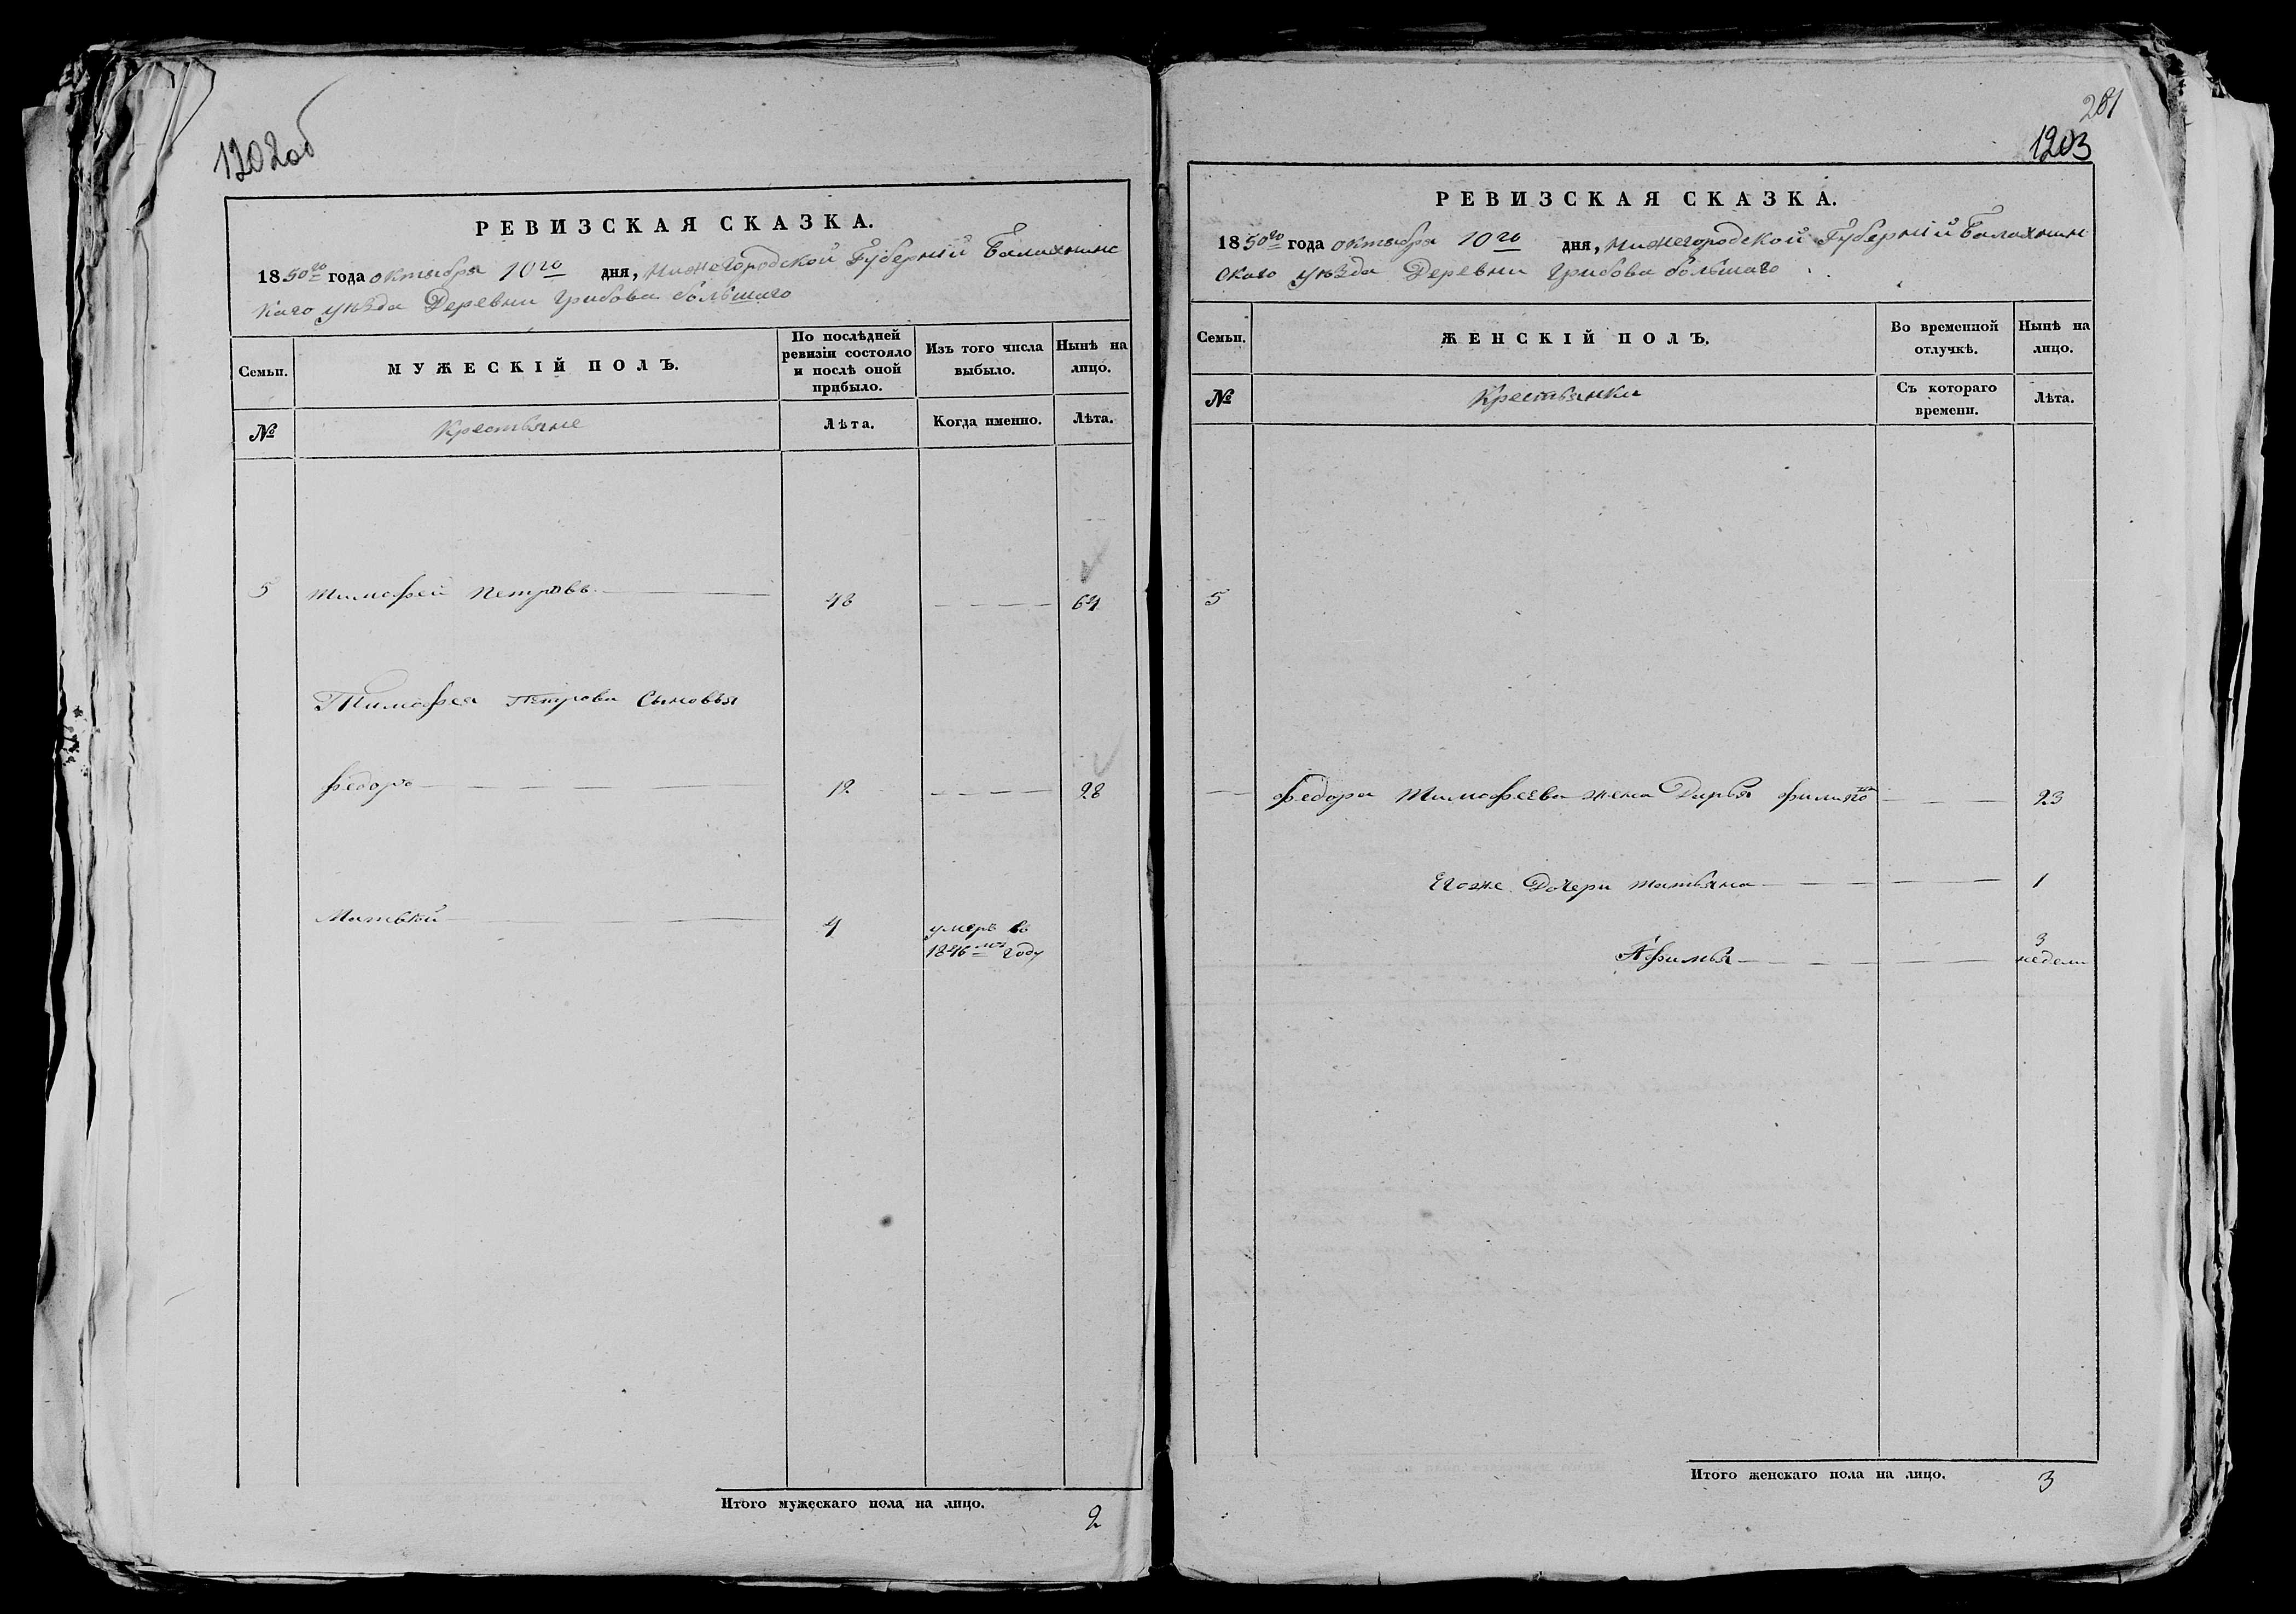 1202об
РЕВИЗСКАЯ СКАЗКА.
1850го года октября 10го дня, Нижегородской Губерніи Балахнинс
каго уѣзда Деревни Грибова большаго
Семьи.
МУЖЕСКІЙ ПОЛЪ.
По послѣдней
ревизіи состояло
и послѣ оной
прибыло.
Изъ того числа
выбыло.
Нынѣ на
лицо.
№
Крестьяне
Лѣта.
Когда именно.
Лѣта.
5 Тимофей Петровъ 48 64
Тимофея Петрова Сыновья
Федоръ 12 28
Матвѣй 4 умеръ въ
1846мъ году
Итого мужескаго пола на лицо. 2
281
1203
РЕВИЗСКАЯ СКАЗКА.
1850го года октября 10го дня, Нижегородской Губерніи Балахнин
скаго уѣзда Деревни Грибова большаго
Семьи.
ЖЕНСКІЙ ПОЛЪ.
Во временной
отлучкѣ.
Нынѣ на
лицо.
№
Крестьянки
Съ котораго
времени.
Лѣта.
5
Федора Тимофеева жена Дарья 23
Егоже Дочери Татьяна 1
Афимья 3
недели
Итого женскаго пола на лицо. 3